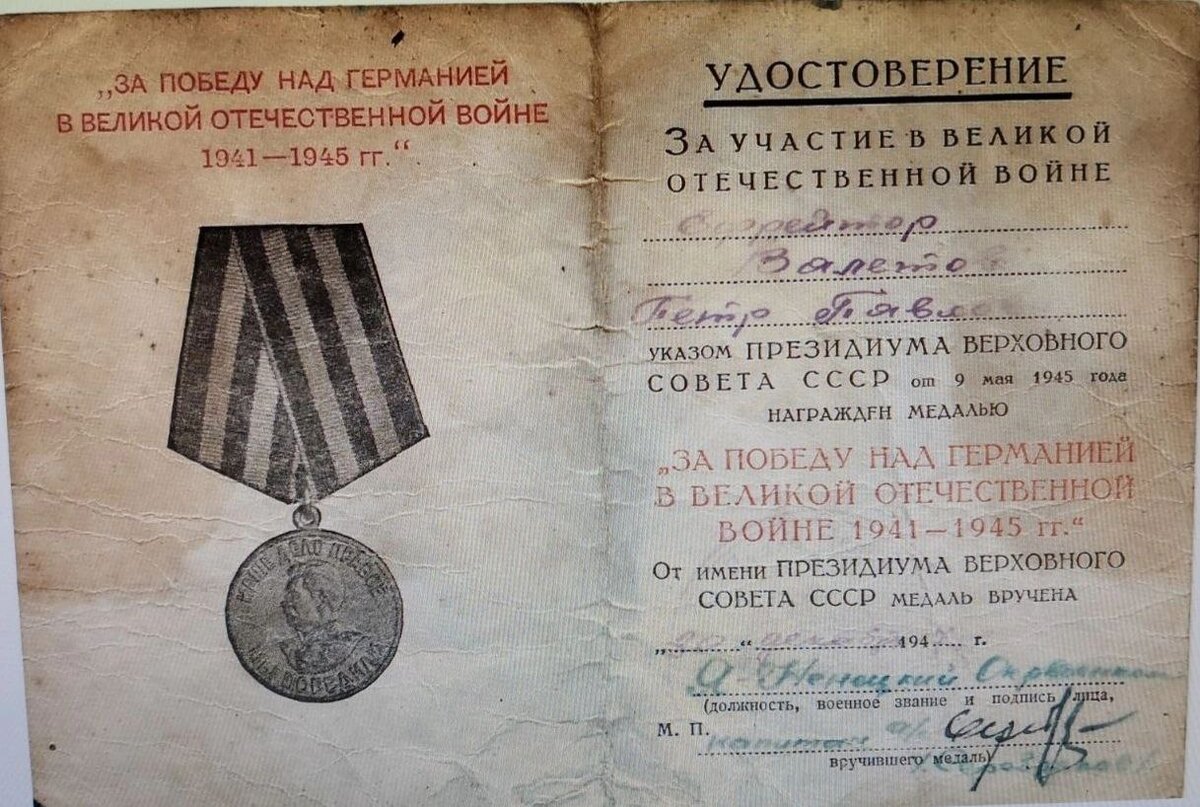 „ЗА ПОБЕДУ НАД ГЕРМАНИЕЙ
В ВЕЛИКОЙ ОТЕЧЕСТВЕННОЙ ВОЙНЕ
1941—1945 гг.“
НАШЕ ДЕЛО ПРАВОЕ
МЫ ПОБЕДИЛИ
УДОСТОВЕРЕНИЕ
ЗА УЧАСТИЕ В ВЕЛИКОЙ
ОТЕЧЕСТВЕННОЙ ВОЙНЕ
Ефрейтор
Валетов
Петр
УКАЗОМ ПРЕЗИДИУМА ВЕРХОВНОГО
СОВЕТА СССР от 9 мая 1945 года
НАГРАЖДЕН МЕДАЛЬЮ
„ЗА ПОБЕДУ НАД ГЕРМАНИЕЙ
В ВЕЛИКОЙ ОТЕЧЕСТВЕННОЙ
ВОЙНЕ 1941—1945 гг.“
ОТ ИМЕНИ ПРЕЗИДИУМА ВЕРХОВНОГО
СОВЕТА СССР МЕДАЛЬ ВРУЧЕНА
„ “ 194 г.
Ненецкий
(должность, военное звание и подпись лица,
М. П. капитан а/с
вручившего медаль)